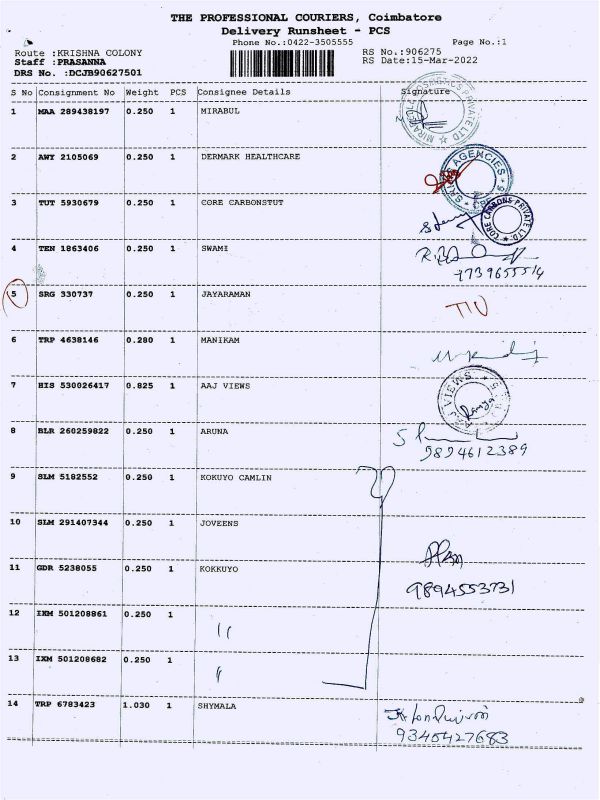 THE PROFESSIONAL COURIERS, Coimbatore
Delivery Runsheet - PCS
Phone No.:0422-3505555 Page No.:1
Route :KRISHNA COLONY RS No.:906275
Staff :PRASANNA RS Date:15-Mar-2022
DRS No. :DCJB90627501
S No Consignment No Weight PCS Consignee Details Signature
1 MAA 289438197 0.250 1 MIRABUL
2 AWY 2105069 0.250 1 DERMARK HEALTHCARE
AGENCIES
3 TUT 5930679 0.250 1 CORE CARBONSTUT
CORE CARBONS PRIVATE LTD
4 TEN 1863406 0.250 1 SWAMI
7739655514
5 SRG 330737 0.250 1 JAYARAMAN
6 TRP 4638146 0.280 1 MANIKAM
7 HIS 530026417 0.825 1 AAJ VIEWS
AAJ VIEWS
8 BLR 260259822 0.250 1 ARUNA
9894612389
9 SLM 5182552 0.250 1 KOKUYO CAMLIN
10 SLM 291407344 0.250 1 JOVEENS
11 GDR 5238055 0.250 1 KOKKUYO
9894553731
12 IXM 501208861 0.250 1 "
13 IXM 501208682 0.250 1 "
14 TRP 6783423 1.030 1 SHYMALA
9345427683